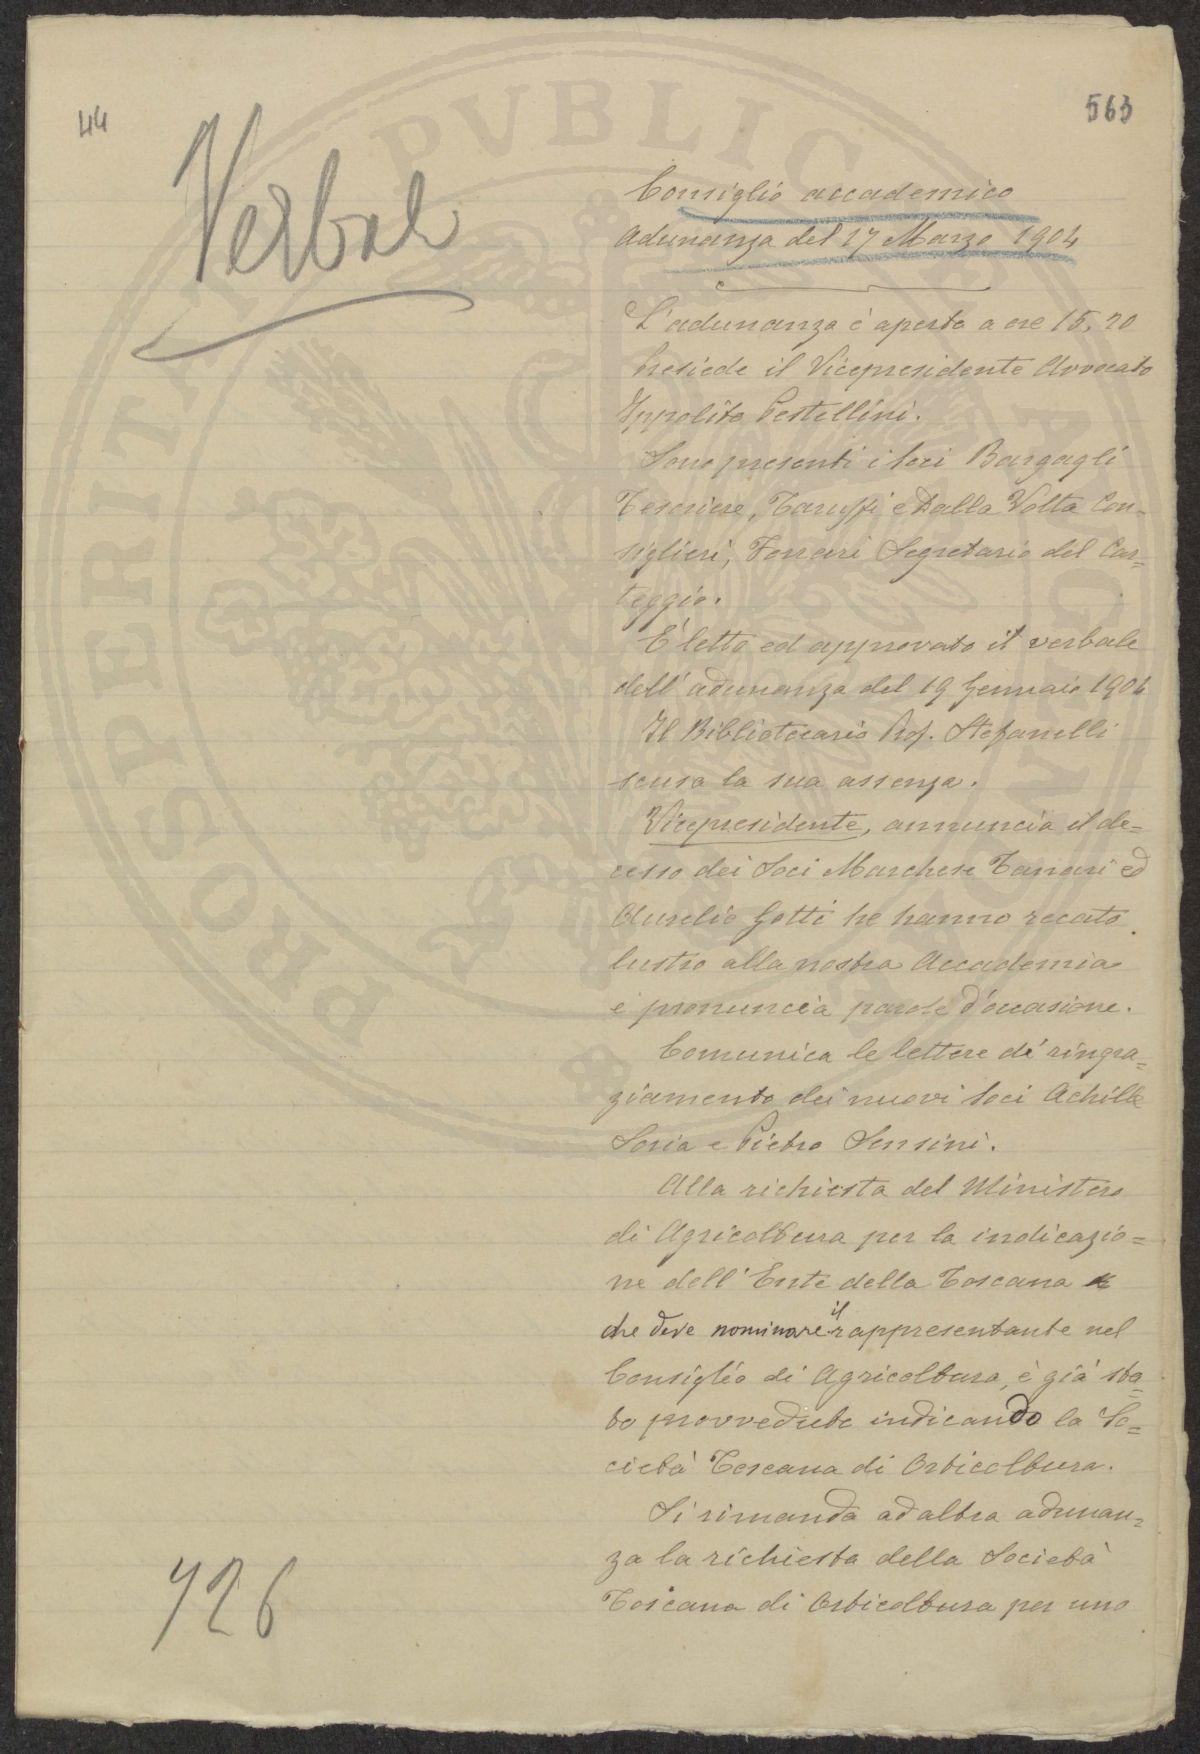 44
563
Verbale
Consiglio accademico
Adunanza del 17 Marzo 1904
L'adunanza è aperta a ore 15,20
Presiede il Vicepresidente Avvocato
Ippolito Pestellini.
Sono presenti i Soci Bargagli
Tesoriere, Taruffi e Dalla Volta Con-
siglieri, Ferrari Segretario del Car=
teggio.
È letto ed approvato il verbale
dell'adunanza del 19 Gennaio 1904
Il Bibliotecario Prof. Stefanelli
scusa la sua assenza.
Vicepresidente, annuncia il de=
cesso dei Soci Marchese Tanari ed
Aurelio Gotti he hanno recato
lustro alla nostra Accademia
e pronuncia parole d'occasione.
Comunica le lettere di ringra=
ziamento dei nuovi Soci Achille
Soria e Pietro Sensini.
Alla richiesta del Ministero
di Agricoltura per la indicazio=
ne dell'Ente della Toscana
che deve nominare il rappresentante nel
Consiglio di Agricoltura, è già sta=
to provveduto indicando la So=
cietà Toscana di Orticoltura.
Si rimanda ad altra adunan=
za la richiesta della Società
Toscana di Orticoltura per uno
726
PROSPERITATI PVBLICAE AVGENDAE